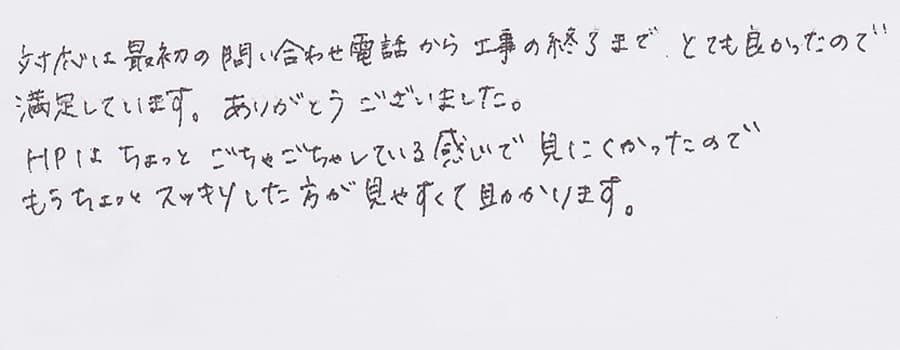 対応は最初の問い合わせ電話から工事の終了まで、とても良かったので
満足しています。ありがとうございました。
HPはちょっとごちゃごちゃしている感じで見にくかったので
もうちょっとスッキリした方が見やすくて助かります。